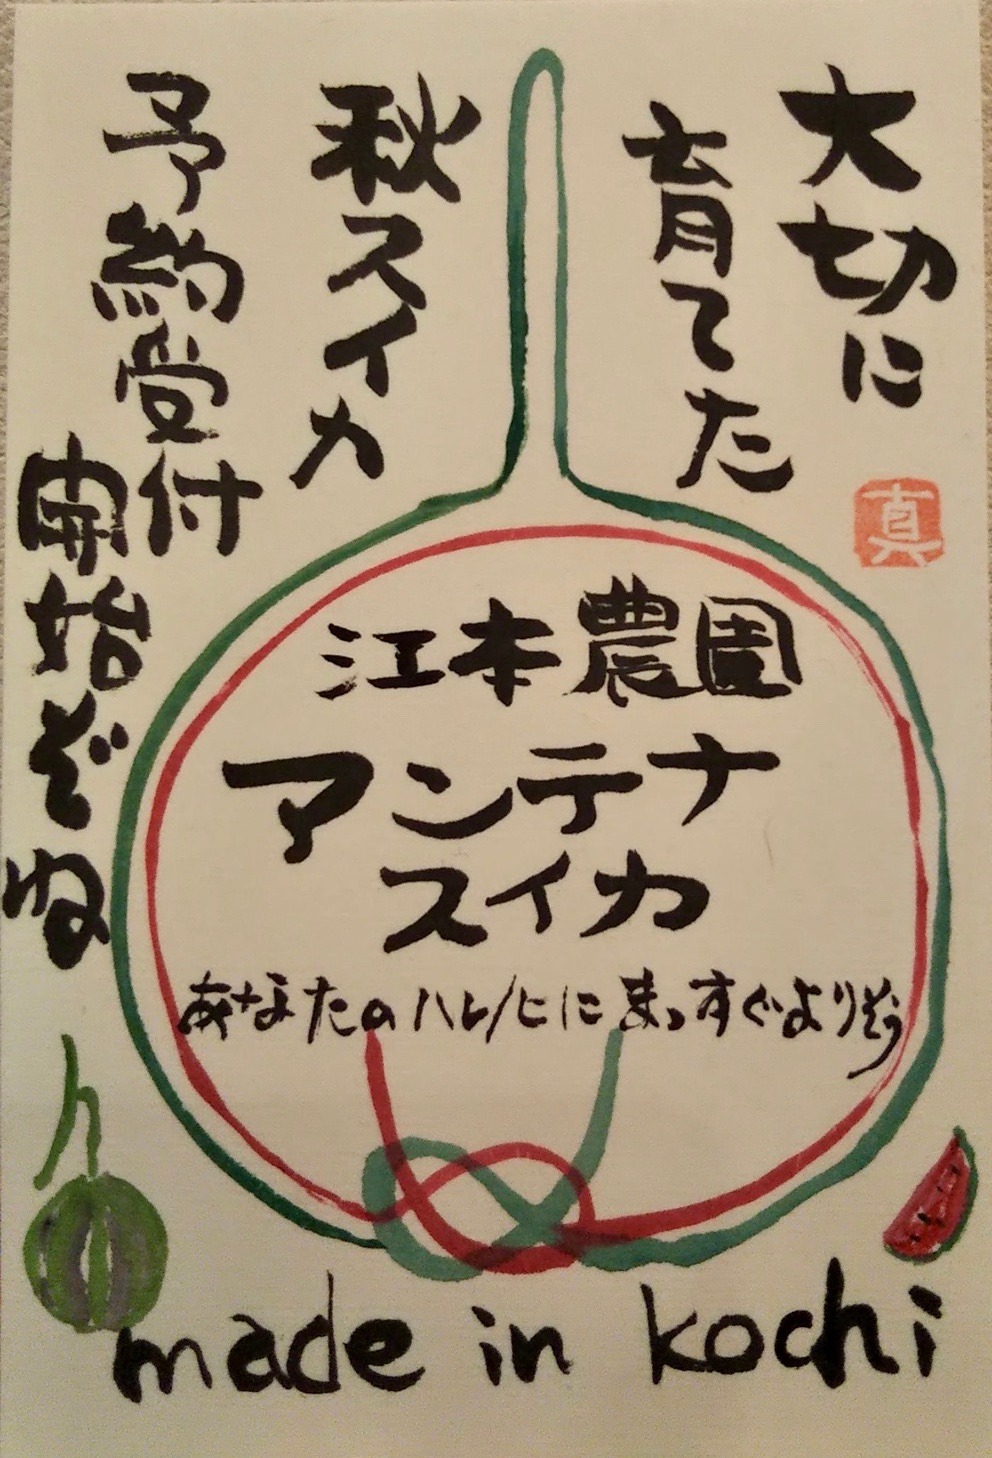 大切に
育てた
秋スイカ
予約受付
開始ぞね
真
江本農園
アンテナ
スイカ
あなたのハレノヒにまっすぐよりそう
made in kochi